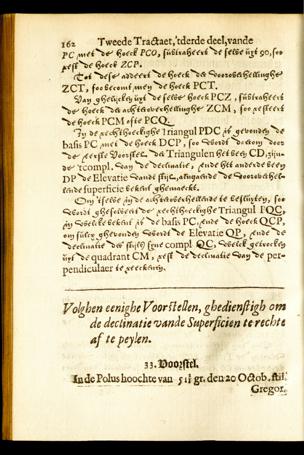 162 Tweede Tractaet, 'tderde deel, vande
PC met de hoeck PCO, subtraheert de selve uyt 90, soo
rest de hoeck ZCP.
Tot dese addeert de hoeck der Vooroverhellinghe
ZCT, soo becomt men de hoeck PCT.
Van ghelijcken uyt de selve hoeck PCZ, subtraheert
de hoeck der achteroverhellinghe ZCM, soo resteert
de hoeck PCM ofte PCQ.
In de rechthoeckighe Triangul PDC is gevonden de
basis PC met de hoeck DCP, soo wordt daerom door
de eerste Voorstel. der Triangulen het been CD, zijnde
't compl. van de declinatie, ende het ander been
DP de Elevatie vande stijl, aengaende de Vooroverhellende
superficie bekent ghemaeckt.
Om 'tselve in de achteroverhellende te besluyten, soo
wordt ghesolveert de rechthoeckighe Triangul PQC,
in welcke bekent is de basis PC, ende de hoeck QCP,
om sulcx ghevonden wordt de Elevatie QP, ende de
declinatie der stijls sijne compl. QC, welcke getrocken
uyt de quadrant CM, rest de declinatie van de perpendiculaer
te reeckenen.
Volghen eenighe Voorstellen, ghedienstigh om
de declinatie vande Superficien te rechte
af te peylen.
33. Voorstel.
In de Polus hoochte van gr. den 20 Octob. stil.
Gregor.